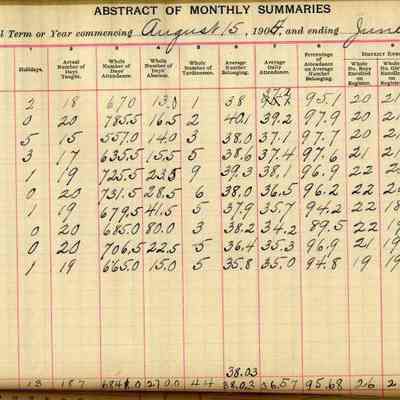 ABSTRACT OF MONTHLY SUMMARIES
Term or Year commencing August 15, 1904, and ending June
1 2 3 4 5 6 7 8
Holidays. Actual Number of Days Taught. Whole Number of Days' Attendance. Whole Number of Days' Absence. Whole Number of Tardinesses. Average Number Belonging. Average Daily Attendance. Percentage of Attendance on Average Number Belonging. Whole No. Boys Enrolled on Register. Whole No. Girls Enrolled on Register.
2 18 670 13.0 1 38 37.2 95.1 20 21
0 20 785.5 16.5 2 40.1 39.2 97.9 20 21
5 15 557.0 14.0 3 38.0 37.1 97.7 20 21
3 17 635.5 15.5 5 38.6 37.4 97.6 21 21
1 19 725.5 23.5 9 39.3 38.1 96.9 22
0 20 731.5 28.5 6 38.0 36.5 96.2 22
1 19 679.5 41.5 5 37.9 35.7 94.2 22 18
0 20 685.0 80.0 3 38.2 34.2 89.5 22 19
0 20 706.5 22.5 5 36.4 35.3 96.9 21 19
1 19 665.0 15.0 5 35.8 35.0 94.8 19 19
38.03
13 187 6841.0 270.0 44 38.03 36.57 95.68 26